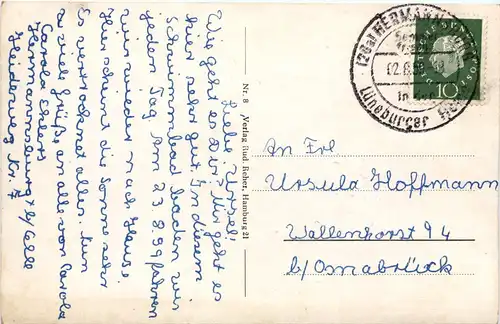 Liebe Ursel!
Wie geht es Dir? Mir geht es
hier sehr gut. In diesem
Schwimmbad baden wir
jeden Tag. Am 23.8.59 fahren
wir wieder nach Hause.
Hier scheint die Sonne sehr
Es vertrocknet alles. Nun
zu viel Grüße an alle von Carola
Carola Ehlers
Hermannsburg b/Celle
Heideweg Nr. 7
Nr. 8 Verlag Rud. Reher, Hamburg 21
(20a) HERMANNSBURG
02.8.59
in der
Lüneburger Heide
10
An Frl
Ursula Hoffmann
Wallenhorst 94
b/Osnabrück